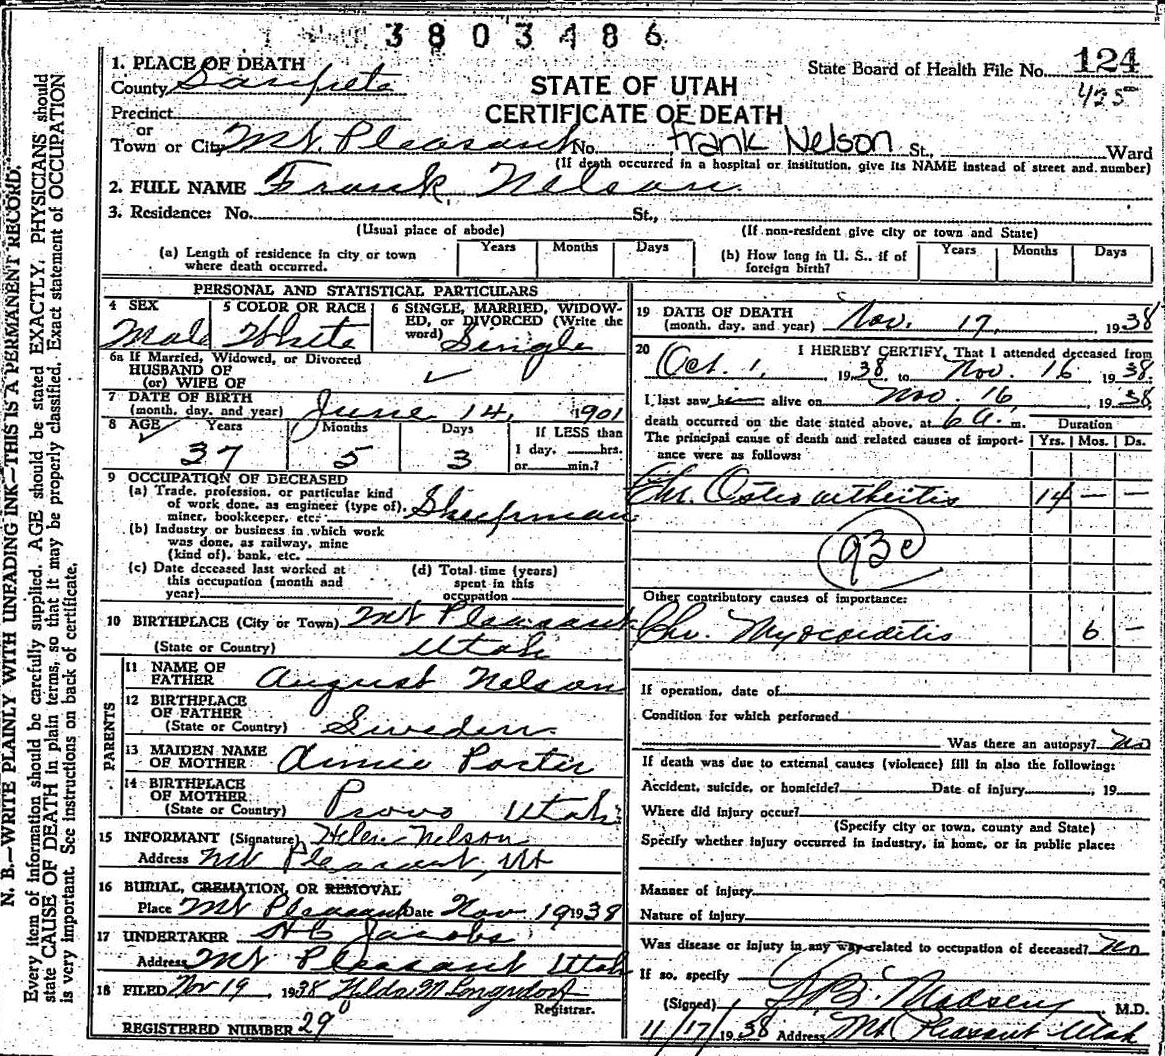 3803486
1. PLACE OF DEATH
County Sanpete
Precinct
or
Town or City Mt. Pleasant No. Frank Nelson St., Ward
(If death occurred in a hospital or institution, give its NAME instead of street and number)
STATE OF UTAH
CERTIFICATE OF DEATH
State Board of Health File No. 124
425
2. FULL NAME Frank Nelson
3. Residence: No. St.,
(Usual place of abode) (If non-resident give city or town and State)
(a) Length of residence in city or town where death occurred. Years Months Days
(b) How long in U. S., if of foreign birth? Years Months Days
PERSONAL AND STATISTICAL PARTICULARS
4 SEX Male
5 COLOR OR RACE White
6 SINGLE, MARRIED, WIDOWED, or DIVORCED (Write the word) Single
6a If Married, Widowed, or Divorced
HUSBAND OF
(or) WIFE OF
7 DATE OF BIRTH
(month, day, and year) June 14, 1901
8 AGE Years 37 Months 5 Days 3
If LESS than
1 day, hrs.
or min.?
9 OCCUPATION OF DECEASED
(a) Trade, profession, or particular kind
of work done, as engineer (type of),
miner, bookkeeper, etc. Sheepman
(b) Industry or business in which work
was done, as railway, mine
(kind of), bank, etc.
(c) Date deceased last worked at
this occupation (month and
year)
(d) Total time (years)
spent in this
occupation
10 BIRTHPLACE (City or Town) Mt Pleasant
(State or Country) Utah
PARENTS
11 NAME OF
FATHER August Nelson
12 BIRTHPLACE
OF FATHER
(State or Country) Sweden
13 MAIDEN NAME
OF MOTHER Annie Porter
14 BIRTHPLACE
OF MOTHER
(State or Country) Provo Utah
15 INFORMANT (Signature) Helen Nelson
Address Mt Pleasant, Ut
16 BURIAL, CREMATION, OR REMOVAL
Place Mt Pleasant Date Nov 19 1938
17 UNDERTAKER Jacobs
Address Mt Pleasant Utah
18 FILED Nov 19, 1938 Hilda M Longsdorf
Registrar.
REGISTERED NUMBER 29
19 DATE OF DEATH
(month, day, and year) Nov. 17, 1938
20 I HEREBY CERTIFY, That I attended deceased from
Oct. 1, 1938 to Nov. 16 1938
I last saw him alive on Nov. 16, 1938
death occurred on the date stated above, at 6 a. m.
The principal cause of death and related causes of importance were as follows:
Duration
Yrs. Mos. Ds.
Chr. Osteo arthritis 14 — —
93c
Other contributory causes of importance:
Chr. Myocarditis 6 —
If operation, date of
Condition for which performed
Was there an autopsy? No
If death was due to external causes (violence) fill in also the following:
Accident, suicide, or homicide? Date of injury , 19
Where did injury occur?
(Specify city or town, county and State)
Specify whether injury occurred in industry, in home, or in public place:
Manner of injury
Nature of injury
Was disease or injury in any way related to occupation of deceased? No
If so, specify
(Signed) Madsen M.D.
11/17/1938 Address Mt Pleasant Utah
N. B.—WRITE PLAINLY WITH UNFADING INK—THIS IS A PERMANENT RECORD.
Every item of information should be carefully supplied. AGE should be stated EXACTLY. PHYSICIANS should
state CAUSE OF DEATH in plain terms, so that it may be properly classified. Exact statement of OCCUPATION
is very important. See instructions on back of certificate.